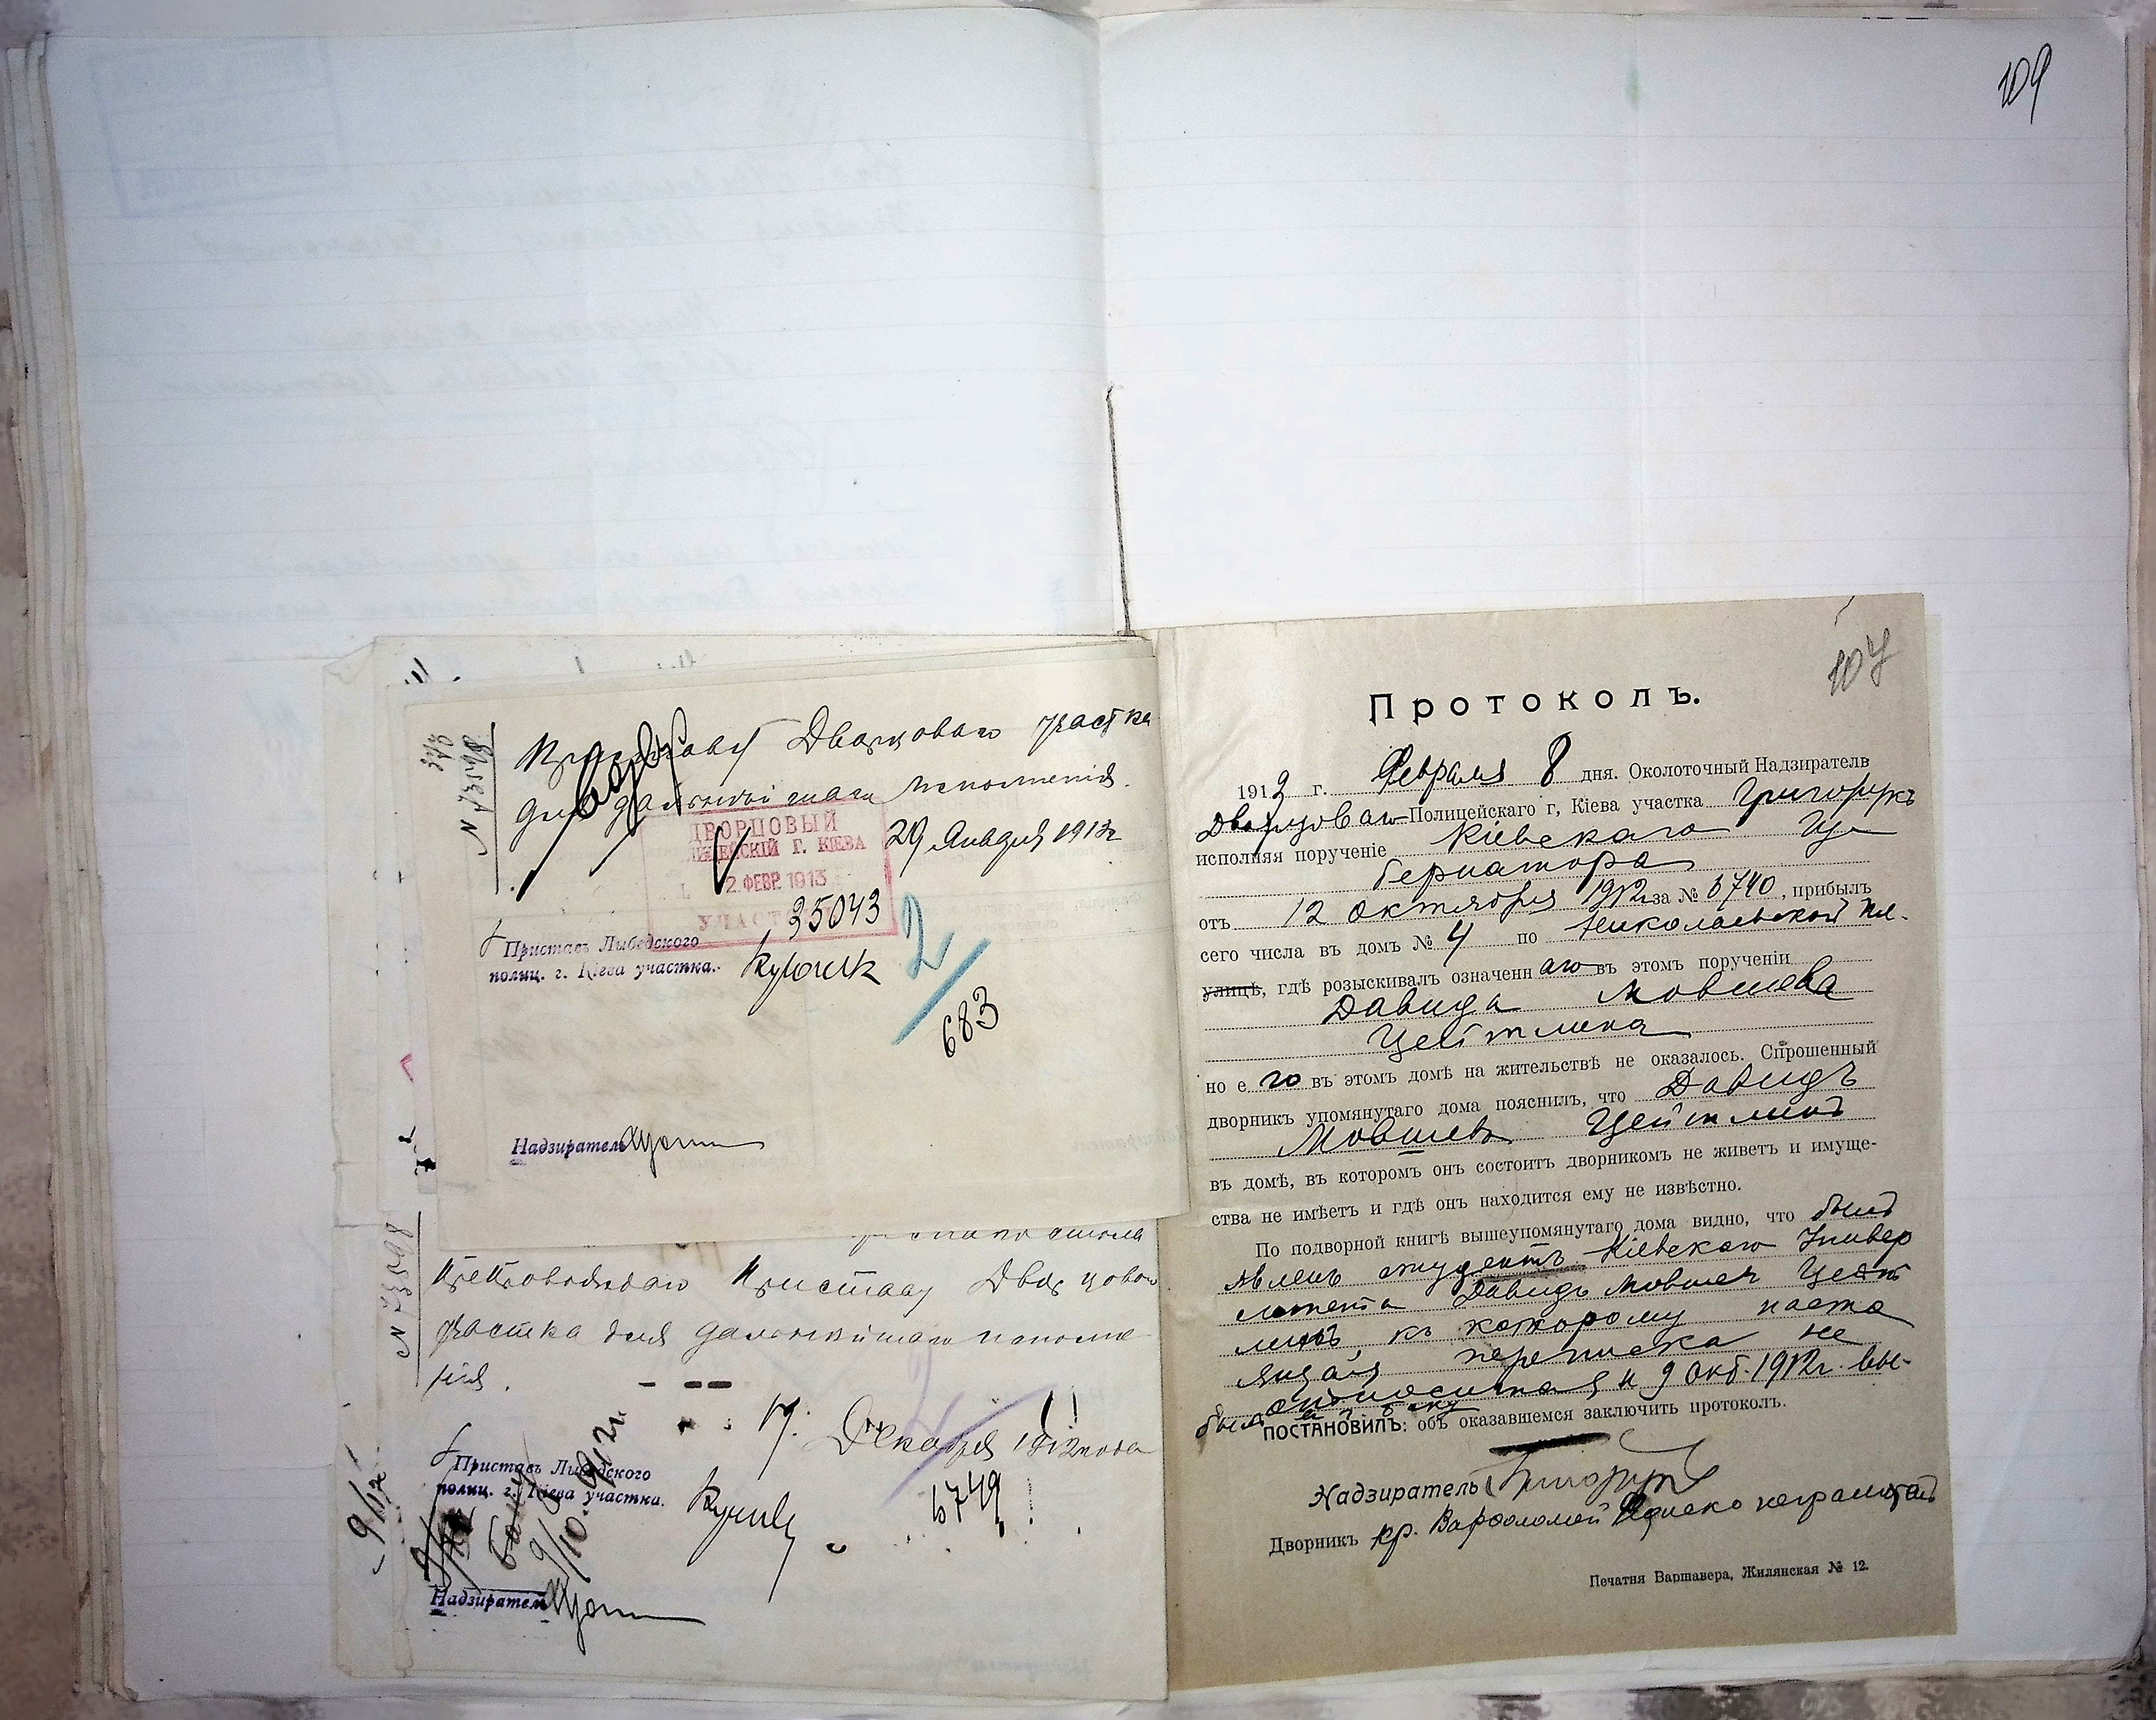 109
№ 73598
373
Приставу Дворцоваго участка
для дальнѣйшаго исполненія.
29 Января 1913 г
ДВОРЦОВЫЙ
Г. КІЕВА
2 ФЕВР. 1913
35043
2
683
Приставъ Лыбедского
полиц. г. Кіева участка.
Надзиратель
№ 73598
Препровождаю Приставу Дворцового
участка для дальнѣйшаго исполне
нія.
17. Декабря 1912 года
Приставъ Лыбедского
полиц. г. Кіева участка.
6749
9/10. 912 г.
Надзиратель
107
Протоколъ.
1912 г. Февраля 8 дня. Околоточный Надзиратель
Дворцоваго Полицейскаго г, Кіева участка Григорукъ
исполняя порученіе Кіевскаго Гу
бернатора
отъ 12 октября 1912 за № 6740, прибылъ
сего числа въ домъ № 4 по Николаевской пл.
улицѣ, гдѣ розыскивалъ означеннаго въ этомъ порученіи
Давида Мовшева
Цейтлина
но его въ этомъ домѣ на жительствѣ не оказалось. Спрошенный
дворникъ упомянутаго дома пояснилъ, что Давидъ
Мовшевъ Цейтлинъ
въ домѣ, въ которомъ онъ состоитъ дворникомъ не живетъ и имуще-
ства не имѣетъ и гдѣ онъ находится ему не извѣстно.
По подворной книгѣ вышеупомянутаго дома видно, что былъ
явленъ студентъ Кіевскаго Универ
ситета Давидъ Мовшев Цейт
линъ, къ которому насто
ящая переписка не
относится и 9 Окт. 1912 г. вы-
былъ в г. Баку
ПОСТАНОВИЛЪ: объ оказавшемся заключить протоколъ.
Надзиратель Григорук
Дворникъ кр. Варфоломей неграмотный
Печатня Варшавера, Жилянская № 12.